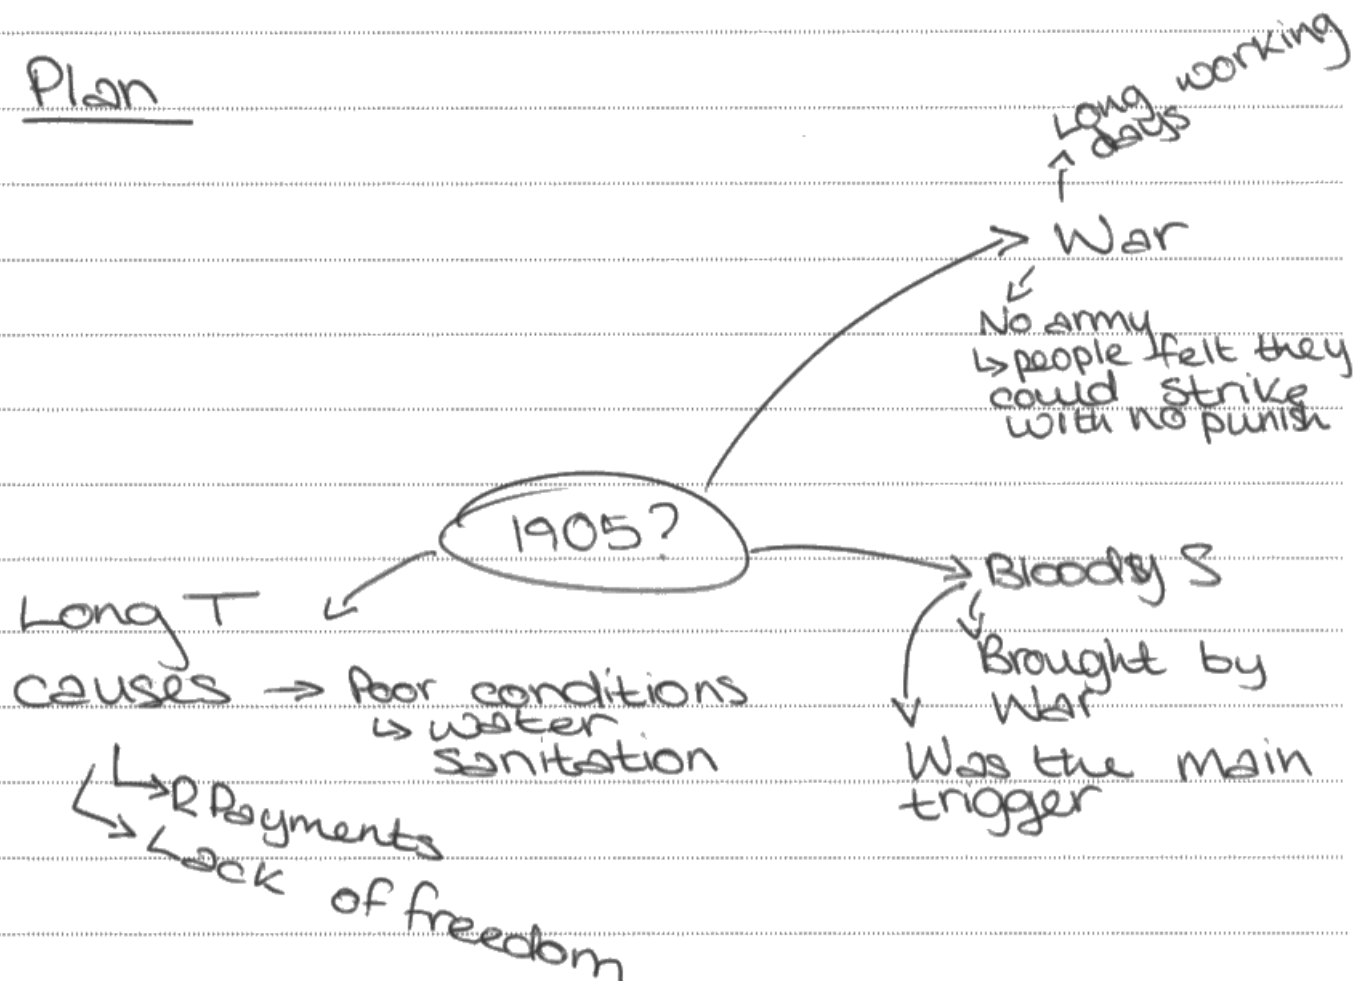 Plan
Long working
days
War
No army
↳ people felt they
could strike
with no punish
1905?
Bloody S
Brought by
War
Was the main
trigger
Long T
causes → Poor conditions
↳ water
sanitation
R Payments
Lack of freedom